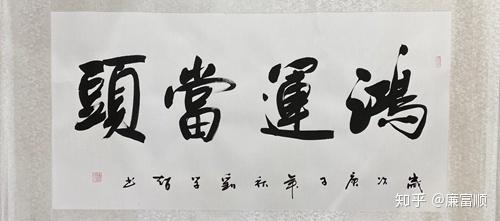 鴻運當頭
歲次庚子年秋劉学书
知乎 @廉富顺